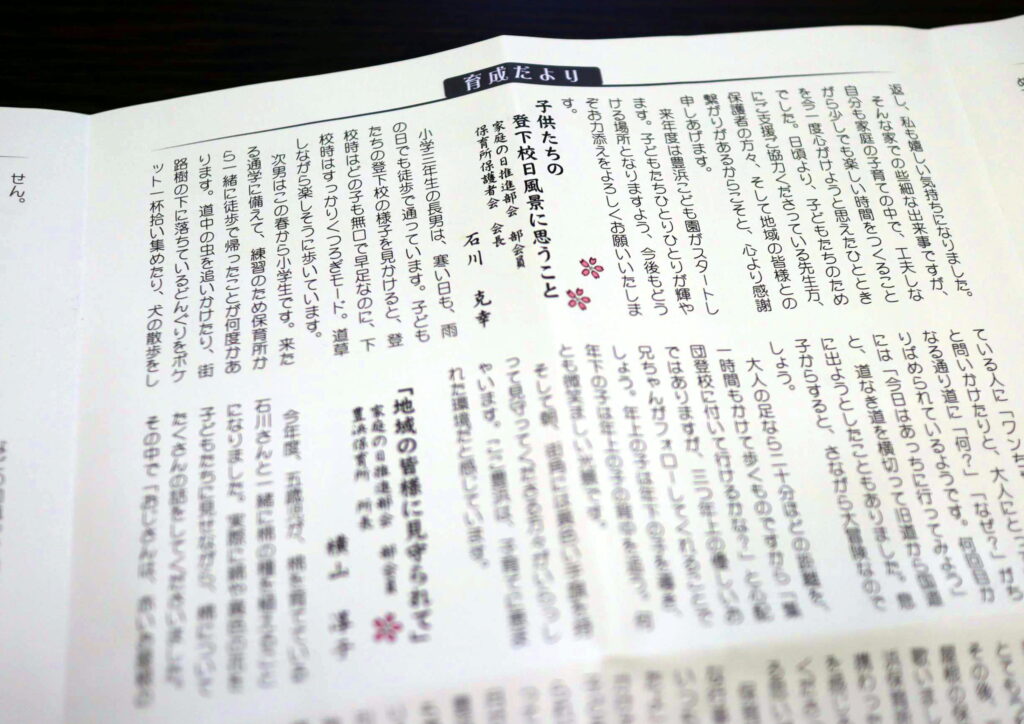 育成だより
返し、私も嬉しい気持ちになりました。
そんな家での些細な出来事ですが、
自分も家庭の子育ての中で、工夫しな
がら少しでも楽しい時間をつくること
を今一度心がけようと思えたひととき
でした。日頃より、子どもたちのため
にご支援ご協力くださっている先生方、
保護者の方々、そして地域の皆様との
繋がりがあるからこそと、心より感謝
申しあげます。
来年度は豊浜こども園がスタートし
ます。子どもたちひとりひとりが輝や
ける場所となりますよう、今後もどう
ぞお力添えをよろしくお願いいたしま
す。
子供たちの
登下校日風景に思うこと
家庭の日推進部会 部会員
保育所保護者会 会長
石川 克幸
小学三年生の長男は、寒い日も、雨
の日でも徒歩で通っています。子ども
たちの登下校の様子を見かけると、登
校時はどの子も無口で早足なのに、下
校時はすっかりくつろぎモード。道草
しながら楽しそうに歩いています。
次男はこの春から小学生です。来た
る通学に備えて、練習のため保育所か
ら一緒に徒歩で帰ったことが何度かあ
ります。道中の虫を追いかけたり、街
路樹の下に落ちているどんぐりをポケ
ット一杯拾い集めたり、犬の散歩をし
ている人に「ワンち
と問いかけたりと、大人にと
なる通り道に「何？」「なぜ？」がち
りばめられているようです。何回目か
には「今日はあっちに行ってみよう」
と、道なき道を横切って旧道から国道
に出ようとしたこともありました。息
子からすると、さながら大冒険なので
しょう。
大人の足なら二十分ほどの距離を、
一時間もかけて歩くものですから「集
団登校に付いて行けるかな？」と心配
ではありますが、三つ年上の優しいお
兄ちゃんがフォローしてくれることで
しょう。年上の子は年下の子を導き、
年下の子は年上の子の背中を追う。何
とも微笑ましい光景です。
そして朝、街角には黄色い手旗を持
って見守ってくださる方々がいらっし
ゃいます。ここ豊浜は、子育てに恵ま
れた環境だと感じています。
「地域の皆様に見守られて」
家庭の日推進部会 部会員
豊浜保育所 所長
横山
今年度、五歳児が、綿を育てている
石川さんと一緒に綿の種を植えること
になりました。実際に綿や
子どもたちに見せながら、綿について
たくさんの話をしてくださいました。
その中で「おじさんは、赤いお屋根の
せん。